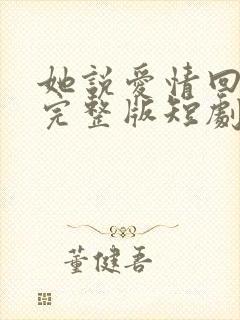 她說愛情回
完整版短劇
董健吾